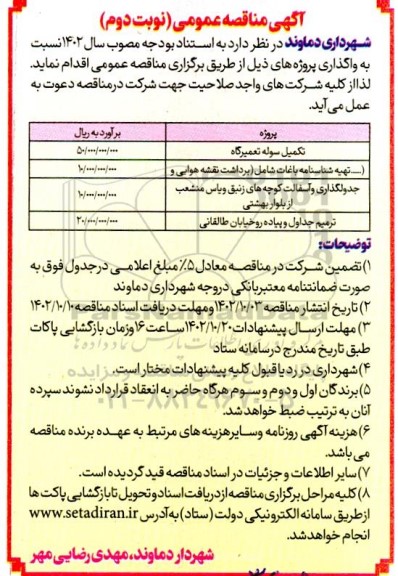 آگهی مناقصه عمومی (نوبت دوم)
شهرداری دماوند در نظر دارد به استناد بودجه مصوب سال ۱۴۰۲ نسبت
به واگذاری پروژه های ذیل از طریق برگزاری مناقصه عمومی اقدام نماید.
لذا از کلیه شرکت های واجد صلاحیت جهت شرکت در مناقصه دعوت به
عمل می آید.
پروژه برآورد به ریال
تکمیل سوله تعمیرگاه ۵۰/۰۰۰/۰۰۰/۰۰۰
(.....تهیه شناسنامه باغات شامل (برداشت نقشه هوایی و ۱۰/۰۰۰/۰۰۰/۰۰۰
جدولگذاری و آسفالت کوچه های زنبق و یاس منشعب
از بلوار بهشتی ۱۰/۰۰۰/۰۰۰/۰۰۰
ترمیم جداول و پیاده رو خیابان طالقانی ۲۰/۰۰۰/۰۰۰/۰۰۰
توضیحات:
۱) تضمین شرکت در مناقصه معادل ۵٪ مبلغ اعلامی در جدول فوق به
صورت ضمانتنامه معتبر بانکی در وجه شهرداری دماوند
۲) تاریخ انتشار مناقصه ۱۴۰۲/۱۰/۰۳ و مهلت دریافت اسناد مناقصه ۱۴۰۲/۱۰/۱۰
۳) مهلت ارسال پیشنهادات ۱۴۰۲/۱۰/۲۰ ساعت ۱۶ و زمان بازگشایی پاکات
طبق تاریخ مندرج در سامانه ستاد
۴) شهرداری در رد یا قبول کلیه پیشنهادات مختار است.
۵) برندگان اول و دوم و سوم هرگاه حاضر به انعقاد قرارداد نشوند سپرده
آنان به ترتیب ضبط خواهد شد.
۶) هزینه آگهی روزنامه و سایر هزینه های مرتبط به عهده برنده مناقصه
می باشد.
۷) سایر اطلاعات و جزئیات در اسناد مناقصه قید گردیده است.
۸) کلیه مراحل برگزاری مناقصه از دریافت اسناد و تحویل تا بازگشایی پاکت ها
از طریق سامانه الکترونیکی دولت (ستاد) به آدرس www.setadiran.ir
انجام خواهد شد.
شهردار دماوند، مهدی رضایی مهر